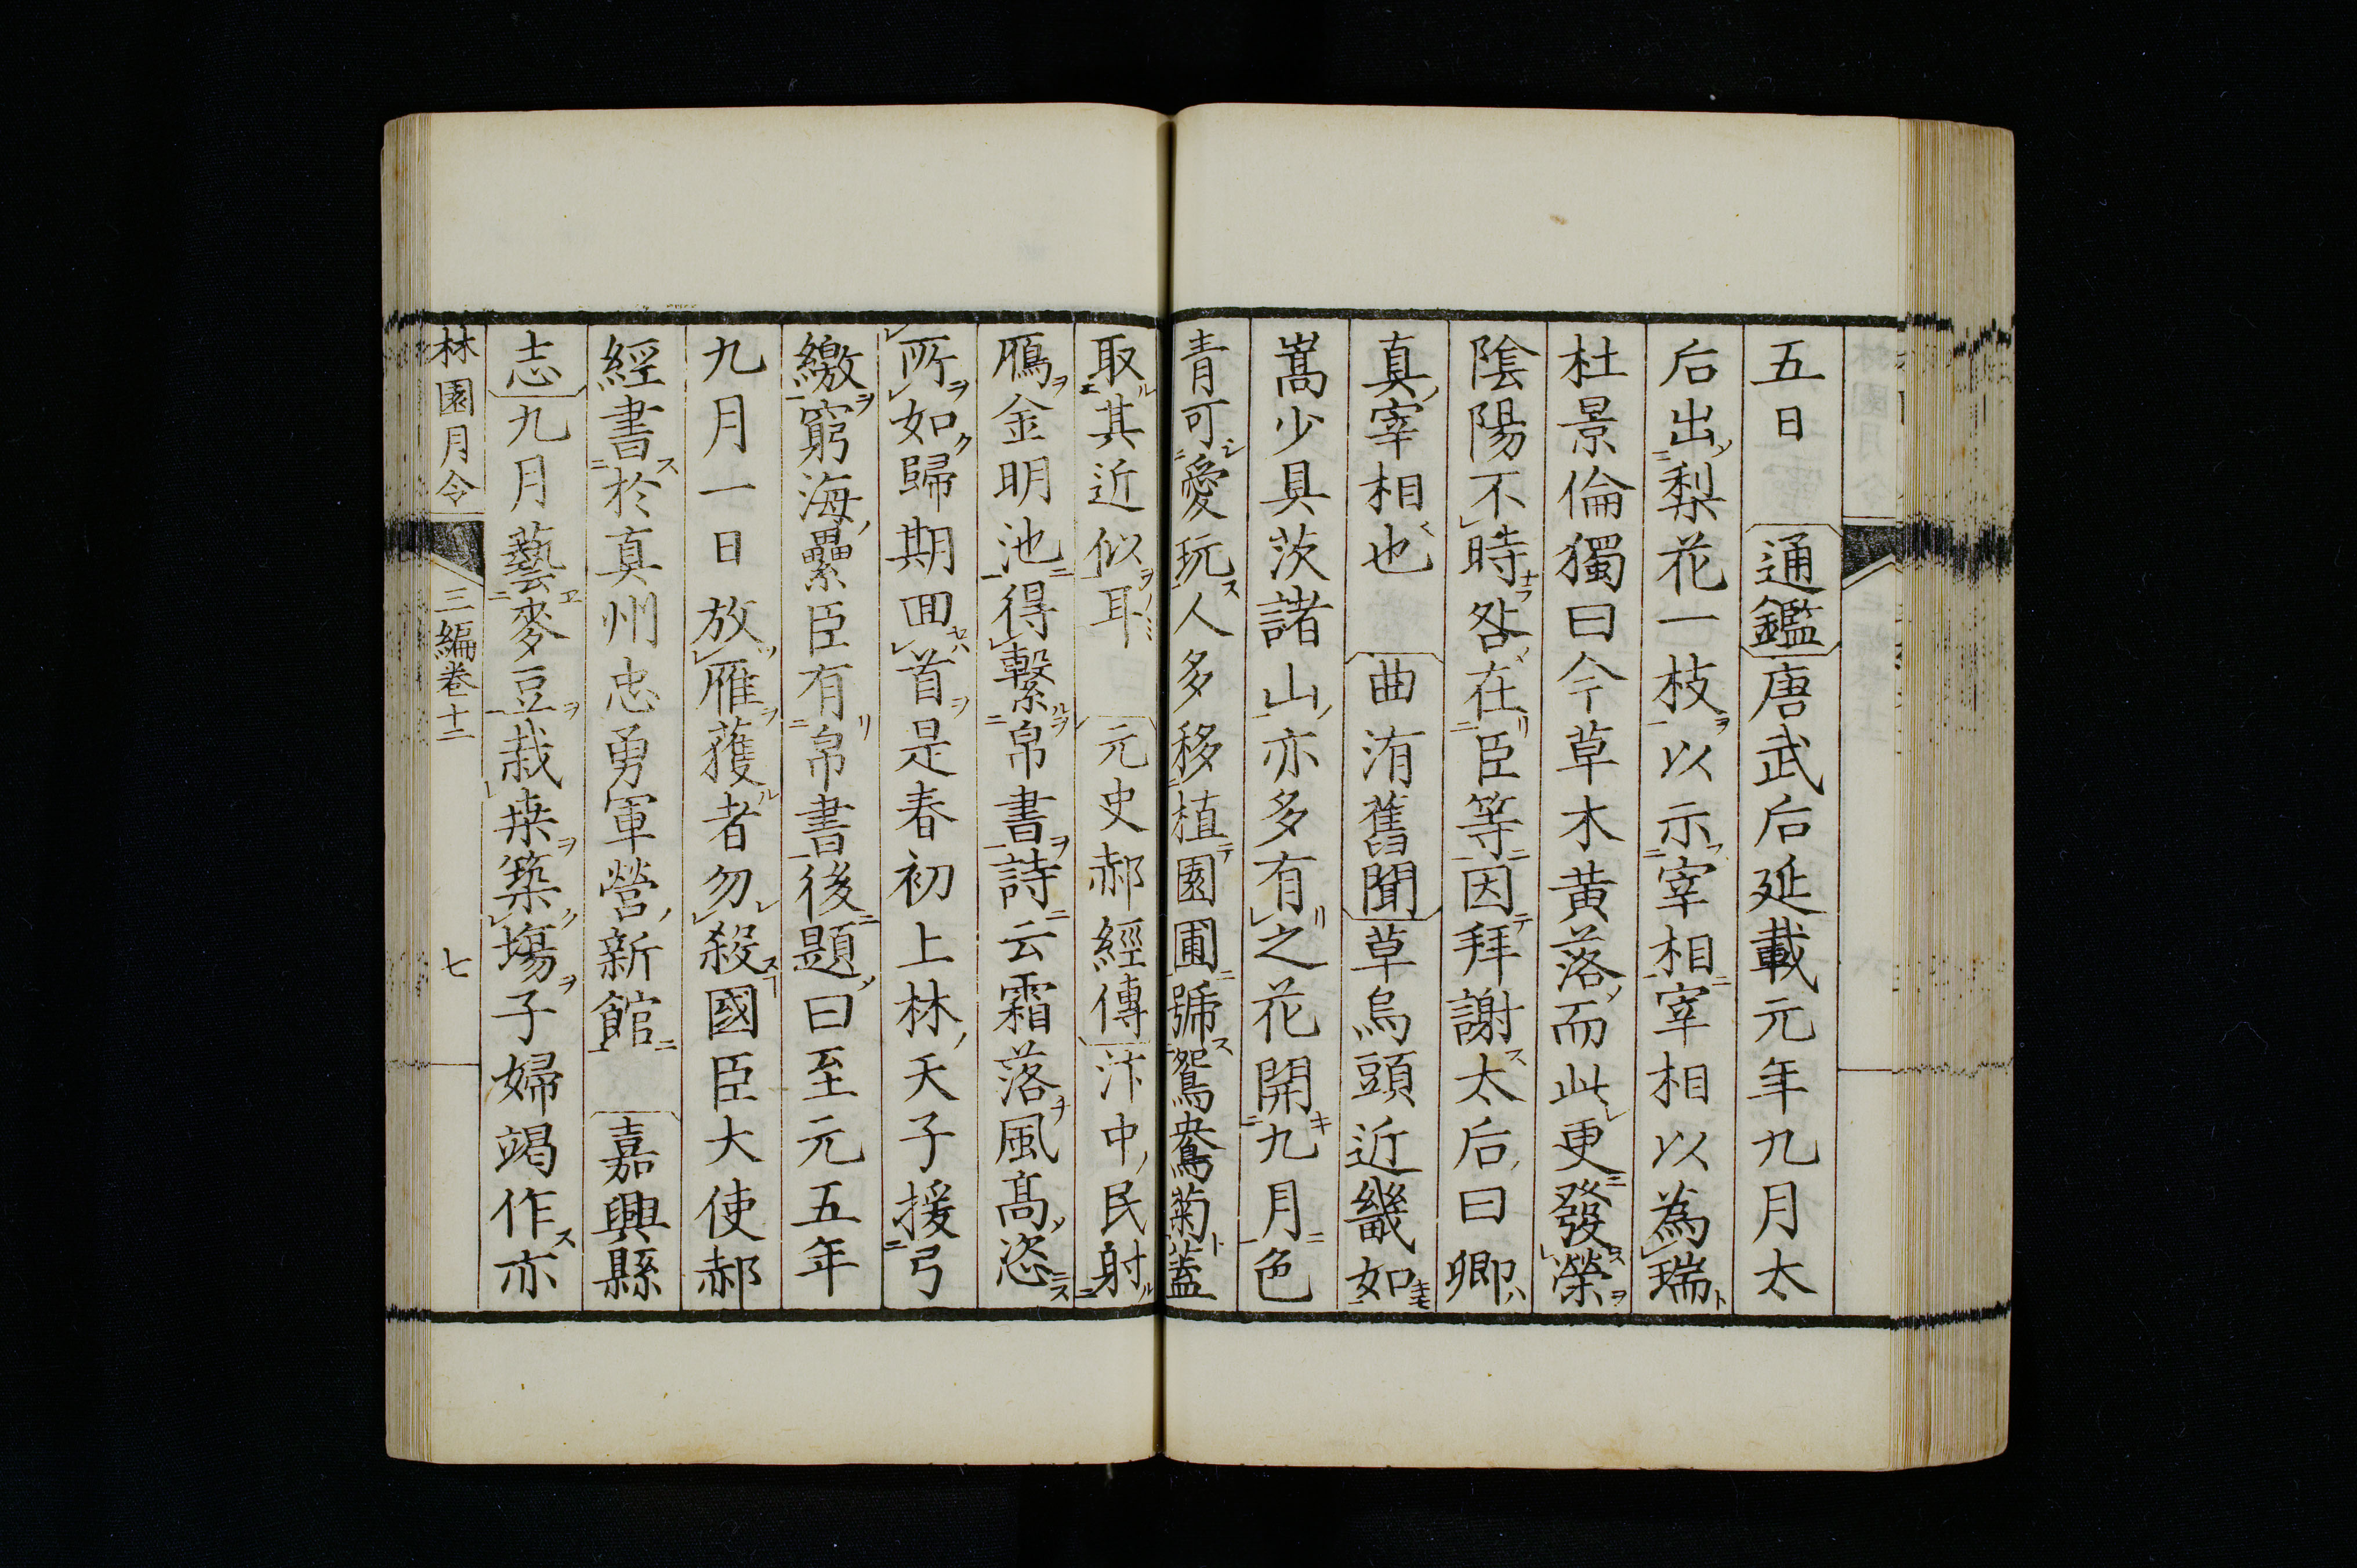 五日　通鑑　唐武后延載元年九月太
后出梨花一枝以示宰相宰相以為瑞
杜景倫獨曰今草木黄落而此更發榮
陰陽不時咎在臣等因拜謝太后曰卿
真宰相也　曲洧舊聞　草烏頭近畿如
嵩少具茨諸山亦多有之花開九月色
青可愛玩人多移植園圃號鴛鴦菊蓋
取其近似耳　元史郝經傳　汴中民射
鴈金明池得繫帛書詩云霜落風髙恣
所如歸期回首是春初上林天子援弓
繳窮海纍臣有帛書後題曰至元五年
九月一日放雁獲者勿殺國臣大使郝
經書於真州忠勇軍營新館　嘉興縣
志　九月藝麥豆栽桒築塲子婦竭作亦
林園月令　三編卷十二　七